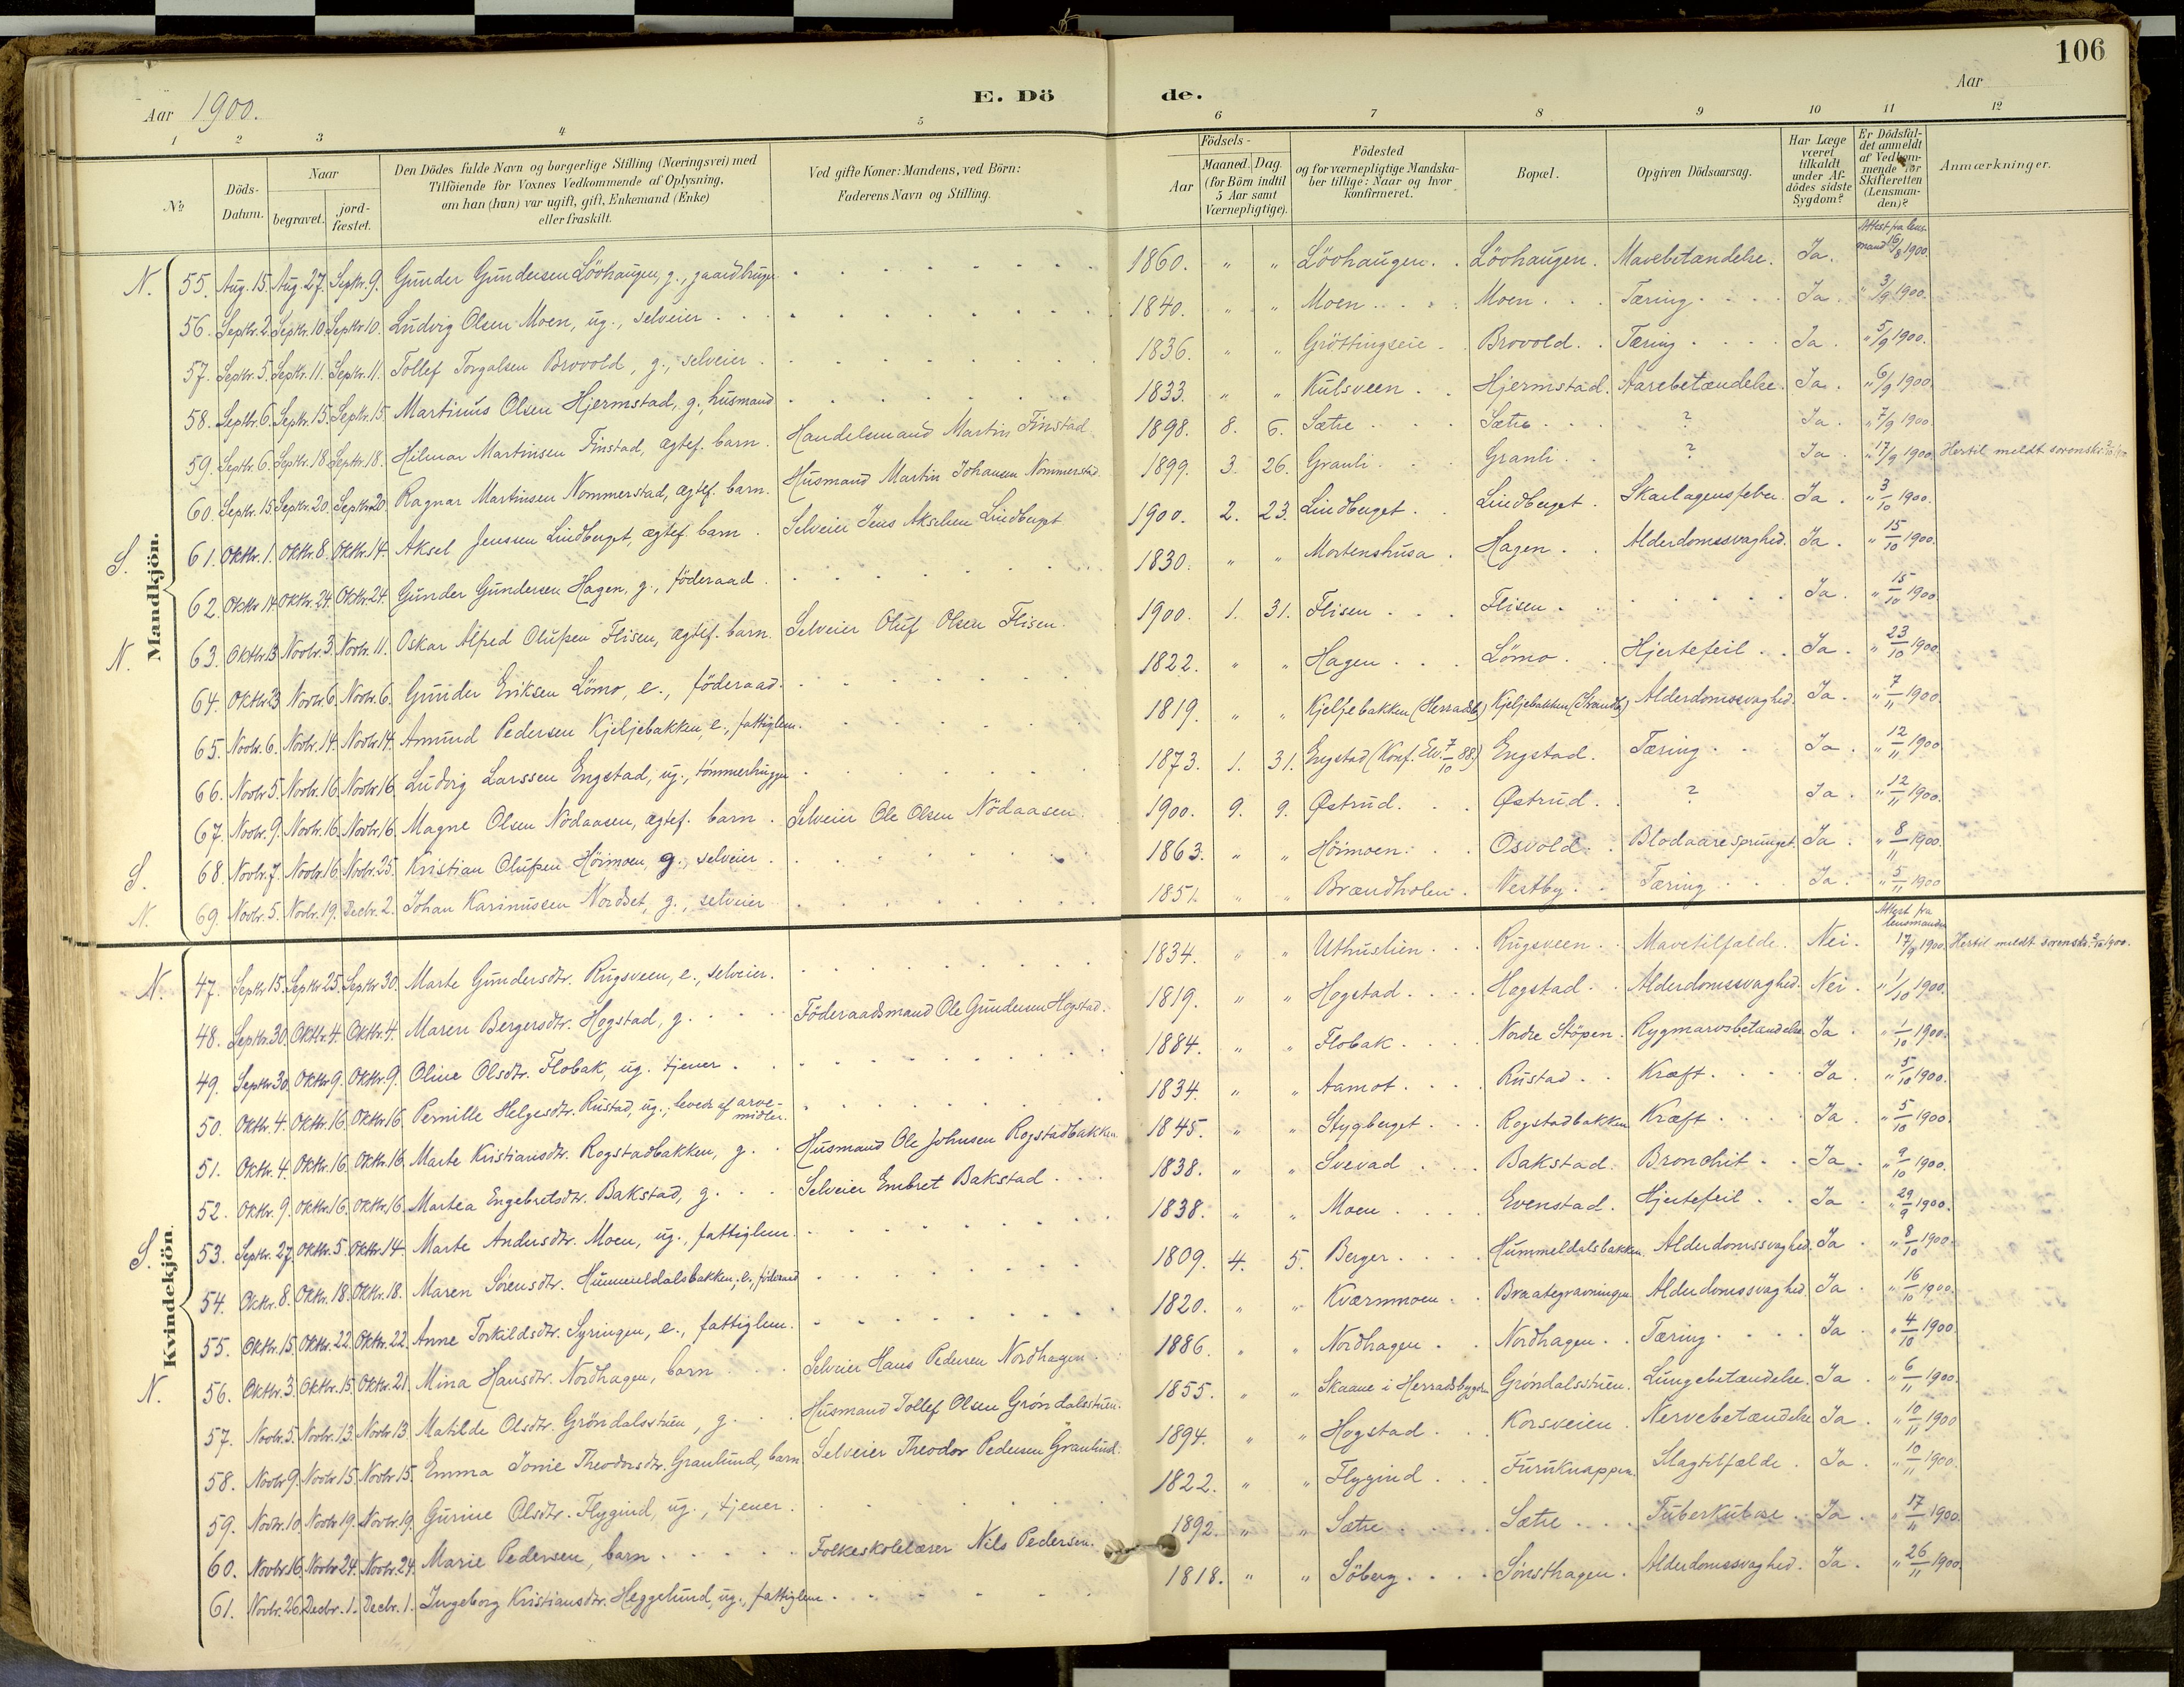 106
Aar 1900.
E. Dö de.
Aar
1 2 3 4 5 6 7 8 9 10 11 12
№
Döds-Datum.
Naar
begravet.
jord-fæstet.
Den Dödes fulde Navn og borgerlige Stilling (Næringsvei) med
Tilföiende for Voxnes Vedkommende af Oplysning,
om han (hun) var ugift, gift, Enkemand (Enke)
eller fraskilt.
Ved gifte Koner: Mandens, ved Börn:
Faderens Navn og Stilling.
Födsels-
Aar
Maaned. Dag.
(for Börn indtil
5 Aar samt
Værnepligtige).
Födested
og for værnepligtige Mandska-
ber tillige: Naar og hvor
konfirmeret.
Bopæl.
Opgiven Dödsaarsag.
Har Læge
været
tilkaldt
under Af-
dödes sidste
Sygdom?
Er Dödsfal-
det anmeldt
af Vedkom-
mende for
Skifteretten
(Lensman-
den)?
Anmærkninger.
Mandkjön.
N. 55. Aug. 15. Aug. 27. Septbr. 9. Gunder Gundersen Lövhaugen, g., gaardbruger 1860. " " Lövhaugen. Lövhaugen. Mavebetændelse. Ja. Attest fra lens-mand 16/8 1900.
56. Septbr. 2. Septbr. 10. Septbr. 10. Ludvig Olsen Moen, ug., selveier 1840. " " Moen Moen Tæring Ja. " 3/9 1900.
57. Septbr. 5. Septbr. 11. Septbr. 11. Tollef Torgalsen Brovold, g., selveier 1836. " " Gröttingseie Brovold. Tæring Ja " 5/9 1900.
58. Septbr. 6. Septbr. 15. Septbr. 15. Martinus Olsen Hjermstad, g., husmand 1833. " " Kulsveen Hjermstad. Aarebetændelse. Ja. " 6/9 1900.
59. Septbr. 6. Septbr. 18. Septbr. 18. Hilmar Martinsen Finstad, ægtef. barn. Handelsmand Martin Finstad 1898. 8. 6. Sætre Sætre ? Ja " 7/9 1900.
60. Septbr. 15. Septbr. 20. Septbr. 20. Ragnar Martinsen Nommerstad, ægtef. barn. Husmand Martin Johansen Nommerstad 1899. 3. 26. Granli Granli ? Ja " 17/9 1900. Hertil meldt sorenskr.
S. 61. Oktbr. 1. Oktbr. 8. Oktbr. 14. Aksel Jenssen Lindberget, ægtef. barn Selveier Jens Akselsen Lindberget 1900. 2. 23. Lindberget Lindberget Skarlagensfeber. Ja. " 3/10 1900.
62. Oktbr 14. Oktbr. 24. Oktbr. 24. Gunder Gundersen Hagen, g., föderaad 1830. " " Mortenshusa Hagen Alderdomssvaghed. Ja. " 15/10 1900.
N. 63. Oktbr. 13 Novbr. 3. Novbr. 11. Oskar Alfred Olufsen Flisen, ægtef. barn. Selveier Oluf Olsen Flisen 1900. 1. 31. Flisen Flisen Ja " 15/10 1900
64. Oktbr. 23 Novbr. 6 Novbr. 6. Gunder Eriksen Lömo, e., föderaad 1822. " " Hagen Lömo Hjertefeil Ja. " 23/10 1900.
65. Novbr. 6. Novbr. 14. Novbr. 14. Amund Pedersen Kjeljebakken, e., fattiglem. 1819. " " Kjeljebakken (Herradsb.) Kjeljebakken (Strandb.) Alderdomssvaghed. Ja. " 7/11 1900
66. Novbr. 5. Novbr. 16. Novbr. 16. Ludvig Larssen Engstad, ug., tömmerhugger 1873. 1. 31. Engstad (Konf. Elv. 7/10 88.) Engstad. Tæring Ja. " 12/11 1900
67. Novbr. 9. Novbr. 16. Novbr. 16. Magne Olsen Nödaasen, ægtef. barn Selveier Ole Olsen Nödaasen 1900. 9. 9. Østrud. Østrud. ? Ja. " 12/11 1900.
S. 68. Novbr. 7. Novbr. 16 Novbr. 25. Kristian Olufsen Höimoen, g., selveier 1863. " " Höimoen Osvold. Blodaare sprunget. Ja. " 8/11 1900.
N. 69. Novbr. 5. Novbr. 19. Decbr. 2. Johan Karinussen Nordset, g., selveier 1851. " " Brændholen. Vestby. Tæring Ja. " 5/11 1900
Kvindekjön.
N. 47. Septbr 15. Septbr 25. Septbr 30. Marte Gundersdtr. Rugsveen, e., selveier. 1834. " " Uthuslien Rugsveen Mavetilfælde. Nei. Attest fra lensmanden 17/9 1900. Hertil meldt sorenskr. 2/10 1900.
48. Septbr. 30. Oktbr. 4. Oktbr. 4. Maren Bergersdtr. Hogstad, g. Föderaadsmand Ole Gundersen Hogstad. 1819. " " Hogstad Hogstad Alderdomssvaghed. Nei. " 1/10 1900.
49. Septbr. 30 Oktbr 9. Oktbr. 9. Oline Olsdtr. Flobak, ug. tjener 1884. " " Flobak Nordre Stöpen. Rygmarvsbetændelse Ja " 1/10 1900.
50. Oktbr. 4. Oktbr. 16 Oktbr. 16. Pernille Helgesdtr. Rustad, ug., levede af arve-midler. 1834. " " Aamot Rustad Kræft Ja. " 5/10 1900.
51. Oktbr. 4. Oktbr. 16 Oktbr. 16. Marte Kristiansdtr. Rogstadbakken, g. Husmand Ole Johnsen Rogstadbakken 1845. " " Stygberget Rogstadbakken Kræft Ja " 5/10 1900.
52. Oktbr. 9. Oktbr. 16. Oktbr. 16. Martea Engebretsdtr. Bakstad, g. Selveier Embret Bakstad 1838. " " Svevad Bakstad. Bronchit Ja. " 9/10 1900.
S. 53. Septbr. 27. Oktbr. 5. Oktbr. 14. Marte Andersdtr. Moen, ug., fattiglem. 1838. " " Moen Evenstad. Hjertefeil Ja " 29/9 1900.
54. Oktbr. 8. Oktbr. 18. Oktbr. 18. Maren Sörensdtr. Hummeldalsbakken, e., föderaad 1809. 4. 5. Berger Hummeldalsbakken. Alderdomssvaghed. Ja " 8/10 1900.
55. Oktbr. 15. Oktbr. 22. Oktbr. 22. Anne Torkildsdtr. Syringen, e., fattiglem. 1820. " " Kværnmoen Braategravningen Alderdomssvaghed. Ja " 16/10 1900.
N. 56. Oktbr. 3. Oktbr. 15. Oktbr. 21. Mina Hansdtr. Nordhagen, barn Selveier Hans Pedersen Nordhagen 1886. " " Nordhagen Nordhagen Tæring Ja " 4/10 1900.
57. Novbr. 5. Novbr. 13. Novbr 13. Matilde Olsdtr. Gröndalsstuen, g. Husmand Tollef Olsen Gröndalsstuen. 1855. " " Skaane i Herradsbygden Gröndalsstuen. Lungebetændelse. Ja " 6/11 1900.
58. Novbr 9. Novbr 15. Novbr. 15. Emma Jonie Theodorsdtr. Granlund, barn Selveier Theodor Pedersen Granlund. 1894. " " Hogstad Korsveien Nervebetændelse Ja " 10/11 1900
59. Novbr. 10. Novbr 19. Novbr. 19. Gurine Olsdtr. Flygind, ug., tjener. 1822. " " Flygind Furuknappen. Slagtilfælde. Ja. " 10/11 1900.
60. Novbr. 16. Novbr 24. Novbr. 24. Marie Pedersen, barn Folkeskolelærer Nils Pedersen. 1892. " " Sætre Sætre Tuberkulose Ja " 17/11 1900.
61. Novbr. 26. Decbr. 1. Decbr. 1. Ingeborg Kristiansdtr. Heggelund, ug., fattiglem 1818. " " Söberg Sönsthagen. Alderdomssvaghed. Ja. " 26/11 1900.